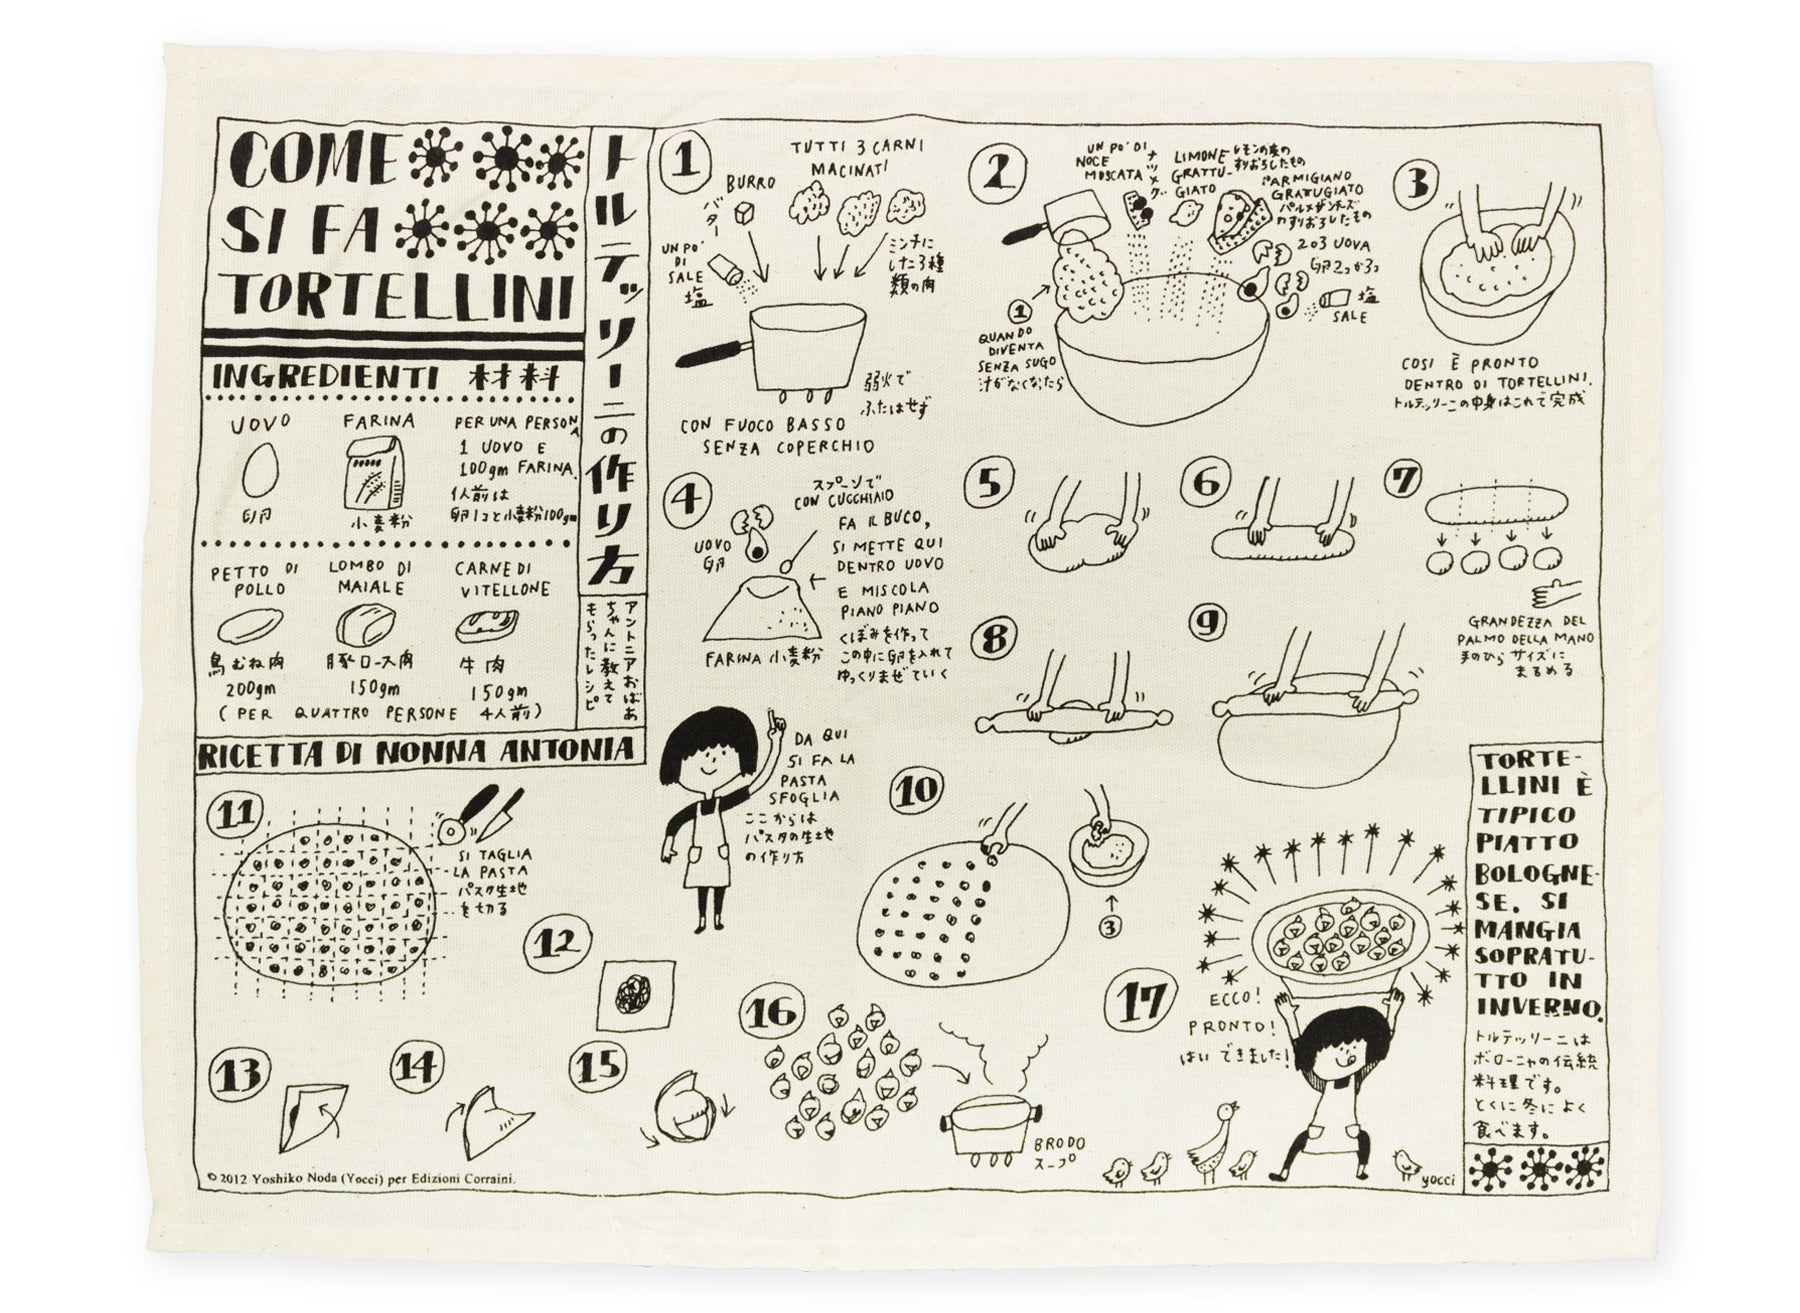 COME
SI FA
TORTELLINI
トルテッリーニの作り方
アントニアおばあ
ちゃんに教えて
もらったレシピ
INGREDIENTI 材料
UOVO
卵
FARINA
小麦粉
PER UNA PERSONA
1 UOVO E
100gm FARINA.
1人前は
卵1コと小麦粉100gm
PETTO DI
POLLO
鳥むね肉
200gm
LOMBO DI
MAIALE
豚ロース肉
150gm
CARNE DI
VITELLONE
牛肉
150gm
(PER QUATTRO PERSONE 4人前)
RICETTA DI NONNA ANTONIA
1
UN PO'
DI
SALE
塩
BURRO
バター
TUTTI 3 CARNI
MACINATI
ミンチに
した3種
類の肉
弱火で
ふたはせず
CON FUOCO BASSO
SENZA COPERCHIO
2
1
QUANDO
DIVENTA
SENZA SUGO
汁がなくなったら
UN PO' DI
NOCE
MOSCATA
ナツメグ
LIMONE
GRATTU-
GIATO
レモンの皮の
すりおろしたもの
PARMIGIANO
GRATTUGIATO
パルメザンチーズ
のすりおろしたもの
2 o 3 UOVA
卵2つか3つ
塩
SALE
3
COSI È PRONTO
DENTRO DI TORTELLINI.
トルテッリーニの中身はこれで完成
4
UOVO
卵
スプーンで
CON CUCCHIAIO
FA IL BUCO,
SI METTE QUI
DENTRO UOVO
E MISCOLA
PIANO PIANO
くぼみを作って
この中に卵を入れて
ゆっくりまぜていく
FARINA 小麦粉
DA QUI
SI FA LA
PASTA
SFOGLIA
ここからは
パスタの生地
の作り方
5
6
7
GRANDEZZA DEL
PALMO DELLA MANO
手のひらサイズに
まるめる
8
9
10
3
11
SI TAGLIA
LA PASTA
パスタ生地
を切る
12
13
14
15
16
BRODO
スープ
17
ECCO!
PRONTO!
はい できました!
yocci
TORTE-
LLINI È
TIPICO
PIATTO
BOLOGNE-
SE. SI
MANGIA
SOPRATU-
TTO IN
INVERNO.
トルテッリーニは
ボローニャの伝統
料理です。
とくに冬によく
食べます。
© 2012 Yoshiko Noda (Yocci) per Edizioni Corraini.